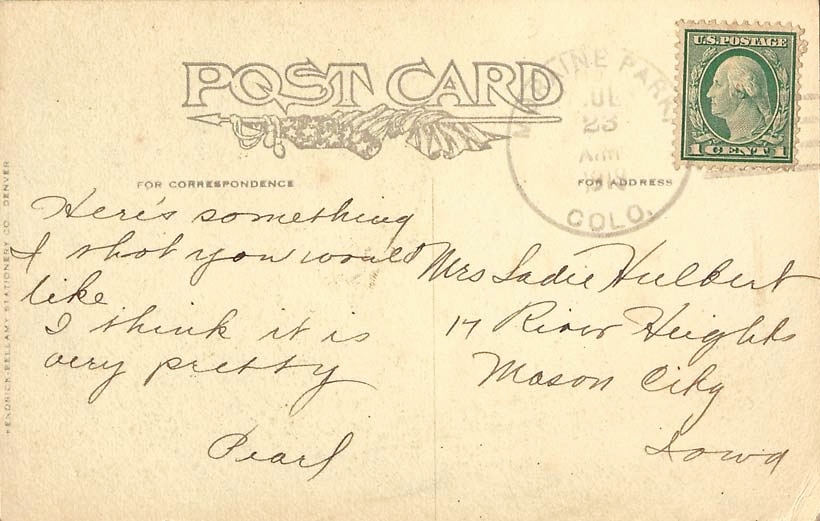 POST CARD
U.S. POSTAGE
1 CENT 1
PARK
JUL
23
AM
COLO.
FOR CORRESPONDENCE
FOR ADDRESS
Here's something
I thot you would
like
I think it is
very pretty
Pearl
Mrs Sadie Hulbert
17 River Heights
Mason City
Iowa
HENDRICK-BELLAMY STATIONERY CO. DENVER